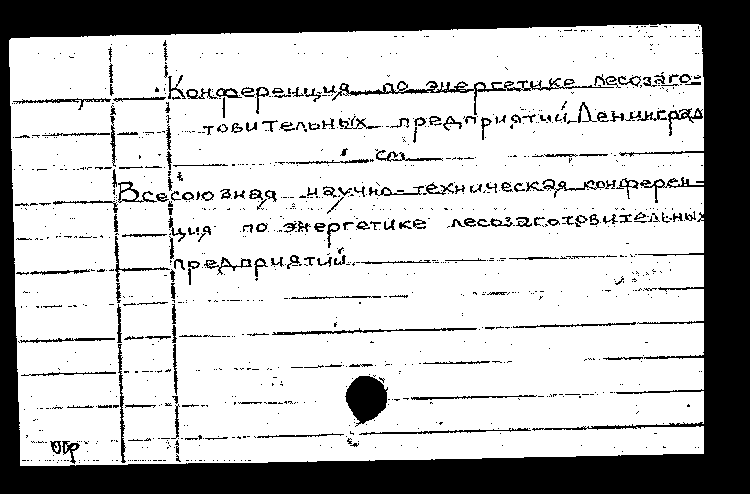 Конференция по энергетике лесозаго-
товительных предприятий, Ленинград
см.
Всесоюзная научно-техническая конферен-
ция по энергетике лесозаготовительных
предприятий